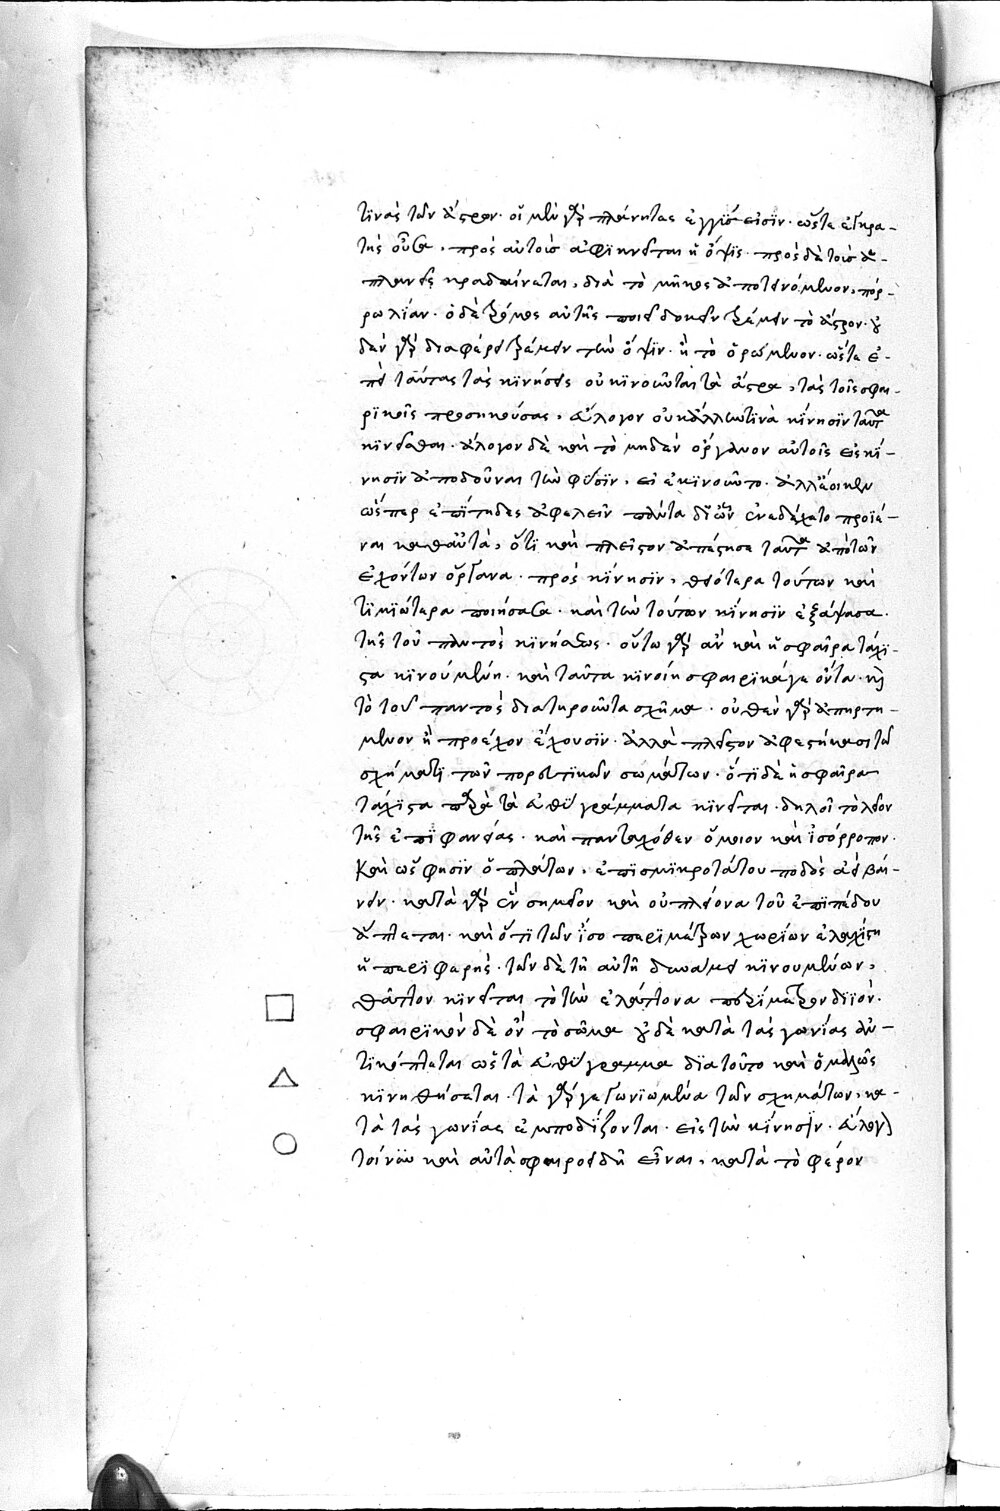 τινας τῶν ἄστρων· οἱ μὲν γὰρ πλάνητες ἐγγύς εἰσϊν· ὥστε ἐγκρα-
τὴς οὖσα, πρὸς αὐτοὺς ἀφϊκνεῖται ἡ ὄψϊς· πρὸς δὲ τοὺς ἀ-
πλανεῖς κραδαίνεται, διὰ τὸ μῆκος ἀποτεινόμενον, πόρ-
ρω λίαν· ὁ δὲ τρόμος αὐτῆς ποιεῖ δοκεῖν τρέμειν τὸ ἄστρον· οὐ
δὲν γὰρ διαφέρει τρέμειν τὴν ὄψϊν· ἢ τὸ ὁρώμενον· ὥστε ἐ-
πεὶ ταύτας τὰς κϊνήσεις οὐ κϊνοῦνται τὰ ἄστρα, τὰς τοῖς σφαι-
ρϊκοῖς προσηκούσας, ἄλογον οὐκ ἄλλων τϊνὰ κίνησϊν ταῦτα
κϊνεῖσθαι· ἄλογον δὲ καὶ τὸ μηδὲν ὄργανον αὐτοῖς εἰς κί-
νησϊν ἀποδοῦναι τὴν φύσϊν, εἰ ἐκϊνοῦντο· ἀλλ' ἔοικεν
ὥσπερ ἐπίτηδες ἀφελεῖν πάντα δϊ' ὧν ἐνεδέχετο προϊέ-
ναι καθ' αὑτά, ὅτϊ καὶ πλεῖστον ἀπέστησε ταῦτα ἀπὸ τῶν
ἐχόντων ὄργανα· πρὸς κίνησϊν, θειότερα τούτων καὶ
τϊμϊώτερα ποιήσασα· καὶ τὴν τούτων κίνησϊν ἐξάψασα
τῆς τοῦ παντὸς κϊνήσεως· οὕτω γὰρ ἂν καὶ ἡ σφαῖρα τάχϊ-
στα κϊνουμένη· καὶ ταῦτα κϊνοίη σφαιρϊκά γε ὄντα· καὶ
τὸ τοῦ παντὸς διατηροῦντα σχῆμα· οὐθὲν γὰρ ἀπηρτη-
μένον ἢ προέχον ἔχουσϊν· ἀλλὰ πλεῖστον ἀφεστήκασι τῶ
σχήματϊ τῶν πορευτϊκῶν σωμάτων· ὅτϊ δὲ ἡ σφαῖρα
τάχϊστα παρὰ τὰ εὐθύγραμματα κϊνεῖται· δηλοῖ τὸ λεῖον
τῆς ἐπϊφανείας· καὶ πανταχόθεν ὅμοιον καὶ ἰσόρροπον·
Καὶ ὥς φησϊν ὁ πλάτων, ἐπὶ σμϊκροτάτου ποδὸς ἀεὶ βαί-
νειν· κατὰ γὰρ ἓν σημεῖον καὶ οὐ πλείονα τοῦ ἐπϊπέδου
ἅπτεται· καὶ ὅτϊ τῶν ἰσοπερϊμέτρων χωρίων ἐλαχίστη
ἡ περϊφερής· τῶν δὲ τῇ αὐτῇ δυνάμει κϊνουμένων,
θᾶττον κϊνεῖται τὸ τὴν ἐλάττονα περίμετρον δϊϊόν·
σφαιρϊκὸν δὲ ὂν τὸ σῶμα οὐδὲ κατὰ τὰς γωνίας ἀν-
τϊκόπτεται ὡς τὰ εὐθύγραμμα δϊὰ τοῦτο καὶ ὁμαλῶς
κϊνηθήσεται· τὰ γάρ γε γωνϊωμένα τῶν σχημάτων, κα-
τὰ τὰς γωνίας ἐμποδίζονται· εἰς τὴν κίνησϊν· εὔλογον
τοίνυν καὶ αὐτὰ σφαιροειδῆ εἶναι, κατὰ τὸ φέρον